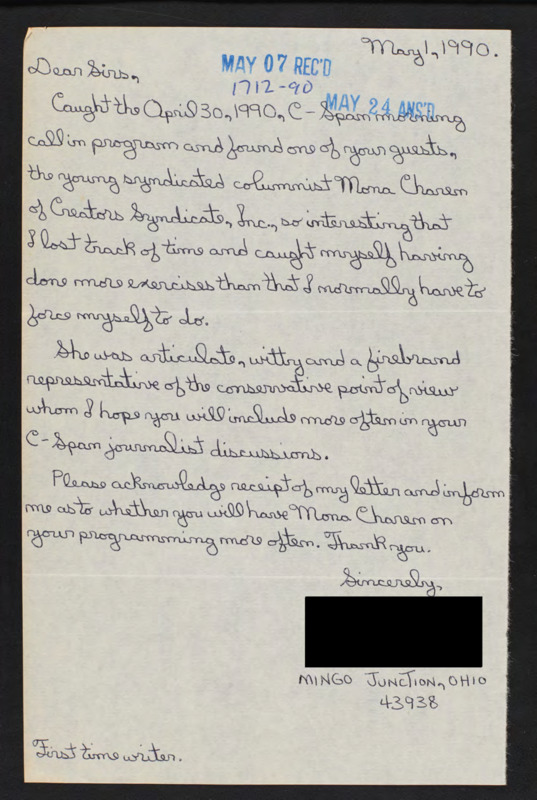 May 1, 1990.
Dear Sirs,
MAY 07 REC'D
1712-90
MAY 24 ANS'D
Caught the April 30, 1990, C-Span morning
call in program and found one of your guests,
the young syndicated columnist Mona Charen
of Creators Syndicate, Inc., so interesting that
I lost track of time and caught myself having
done more exercises than that I normally have to
force myself to do.
She was articulate, witty and a firebrand
representative of the conservative point of view
whom I hope you will include more often in your
C-Span journalist discussions.
Please acknowledge receipt of my letter and inform
me as to whether you will have Mona Charen on
your programming more often. Thank you.
Sincerely,
MINGO JUNCTION, OHIO
43938
First time writer.